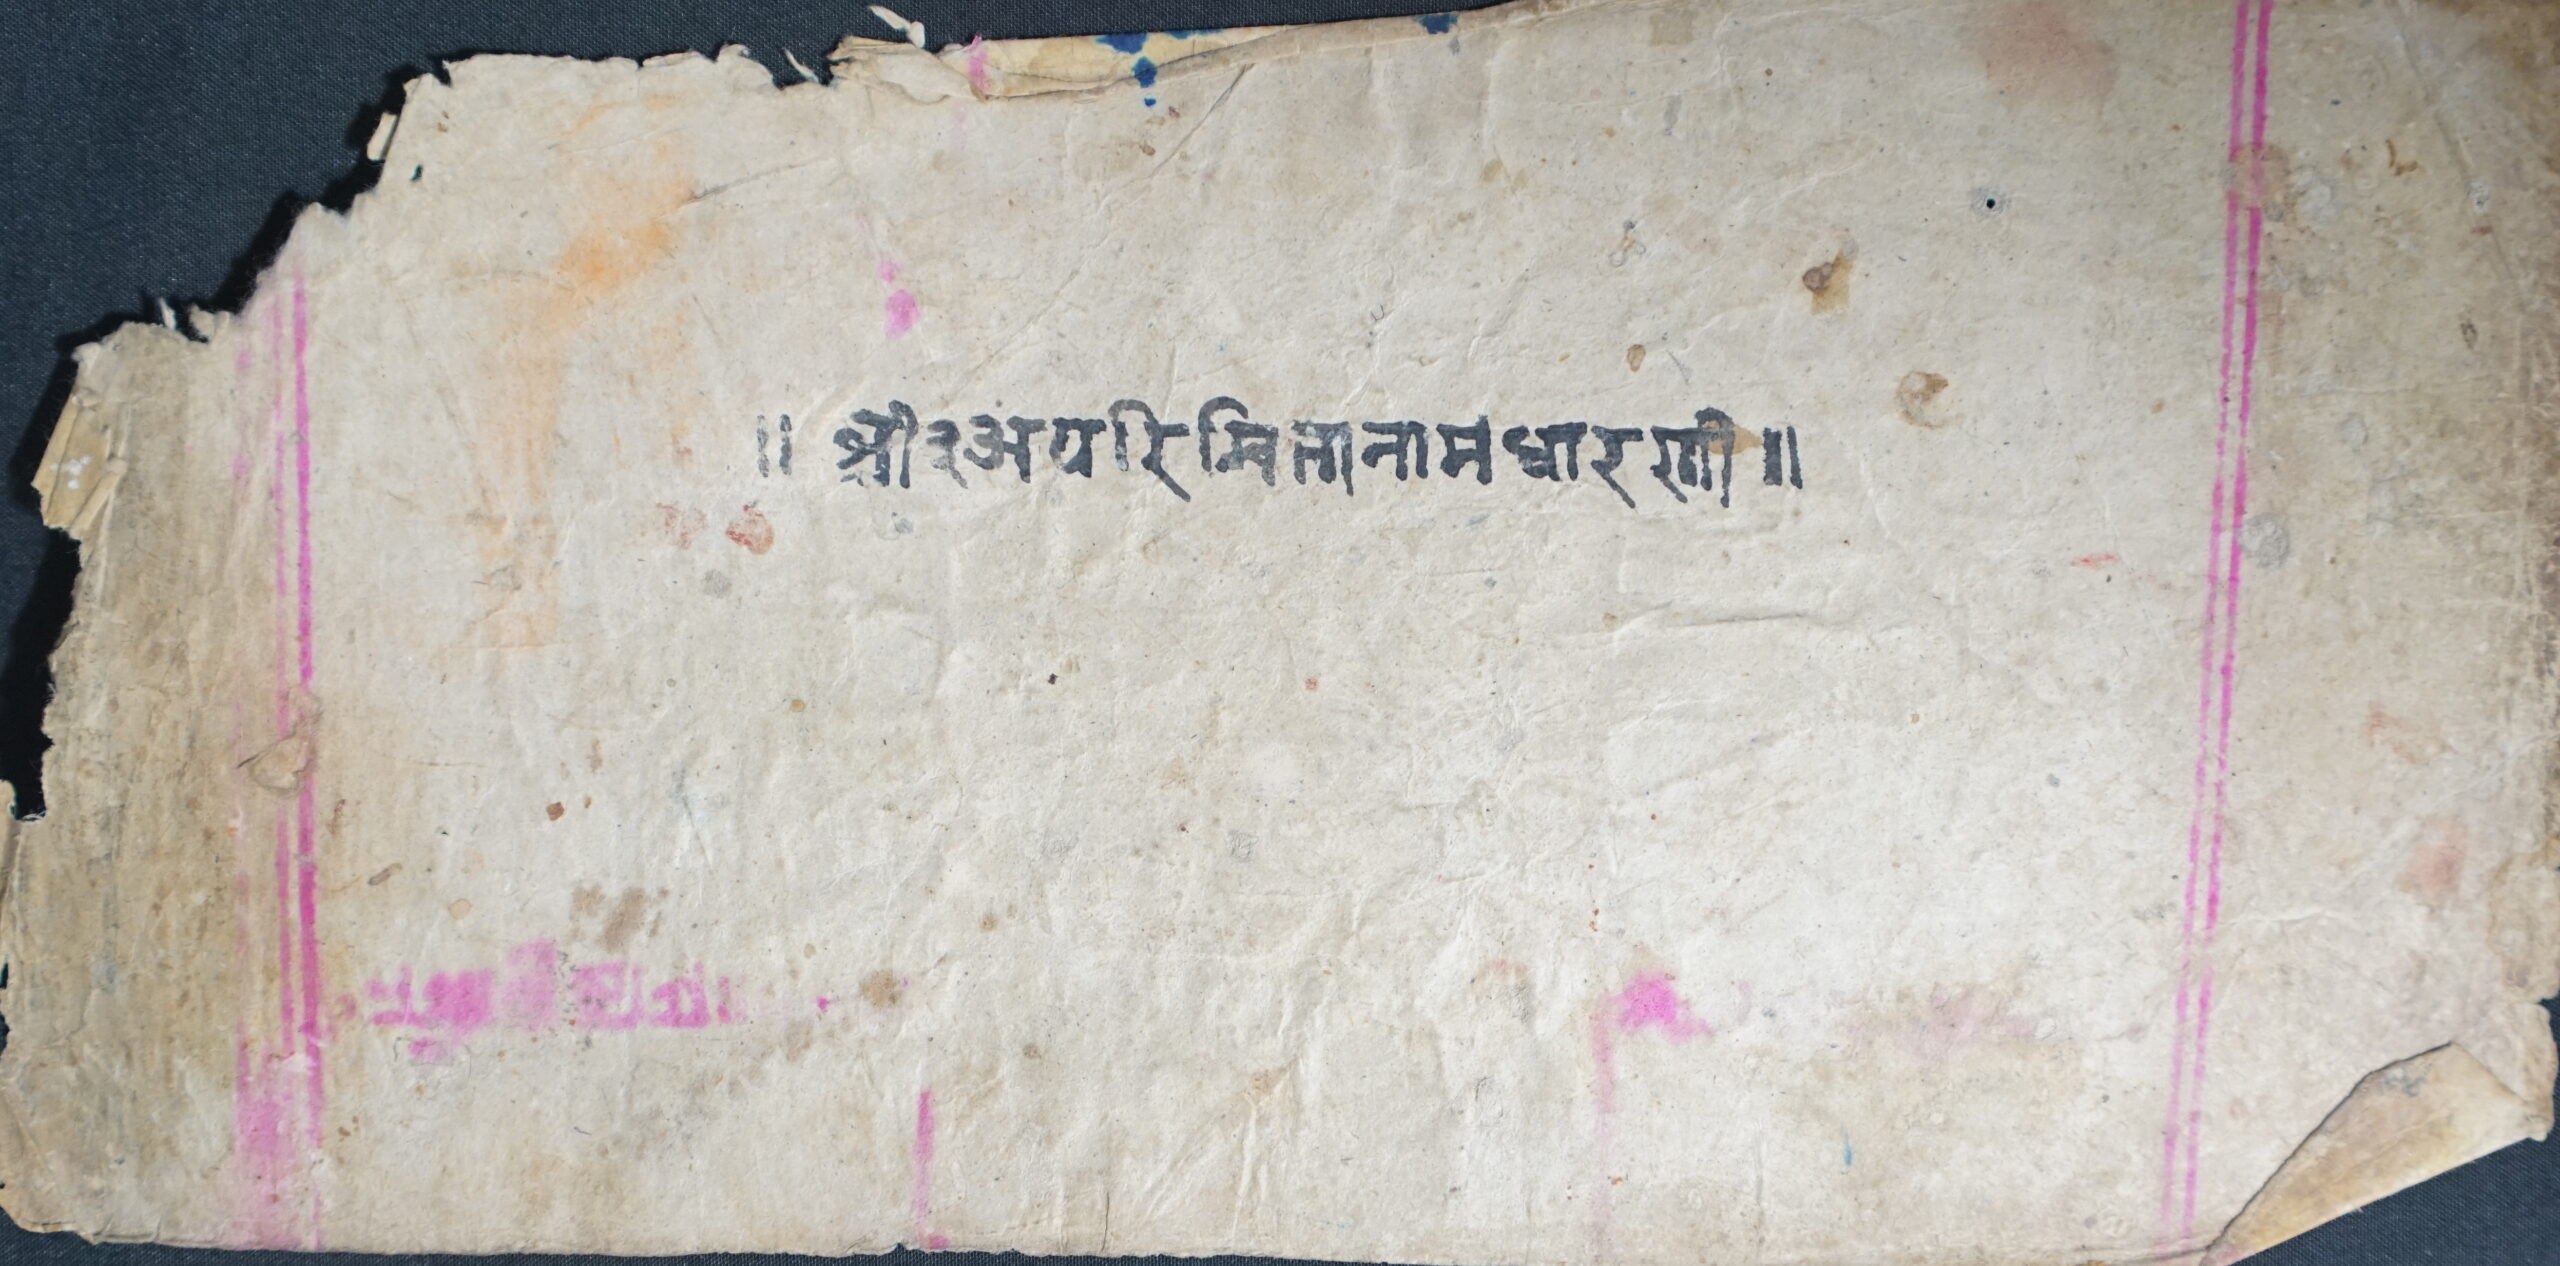 ॥ श्री३अपरिमितानामधारणी ॥